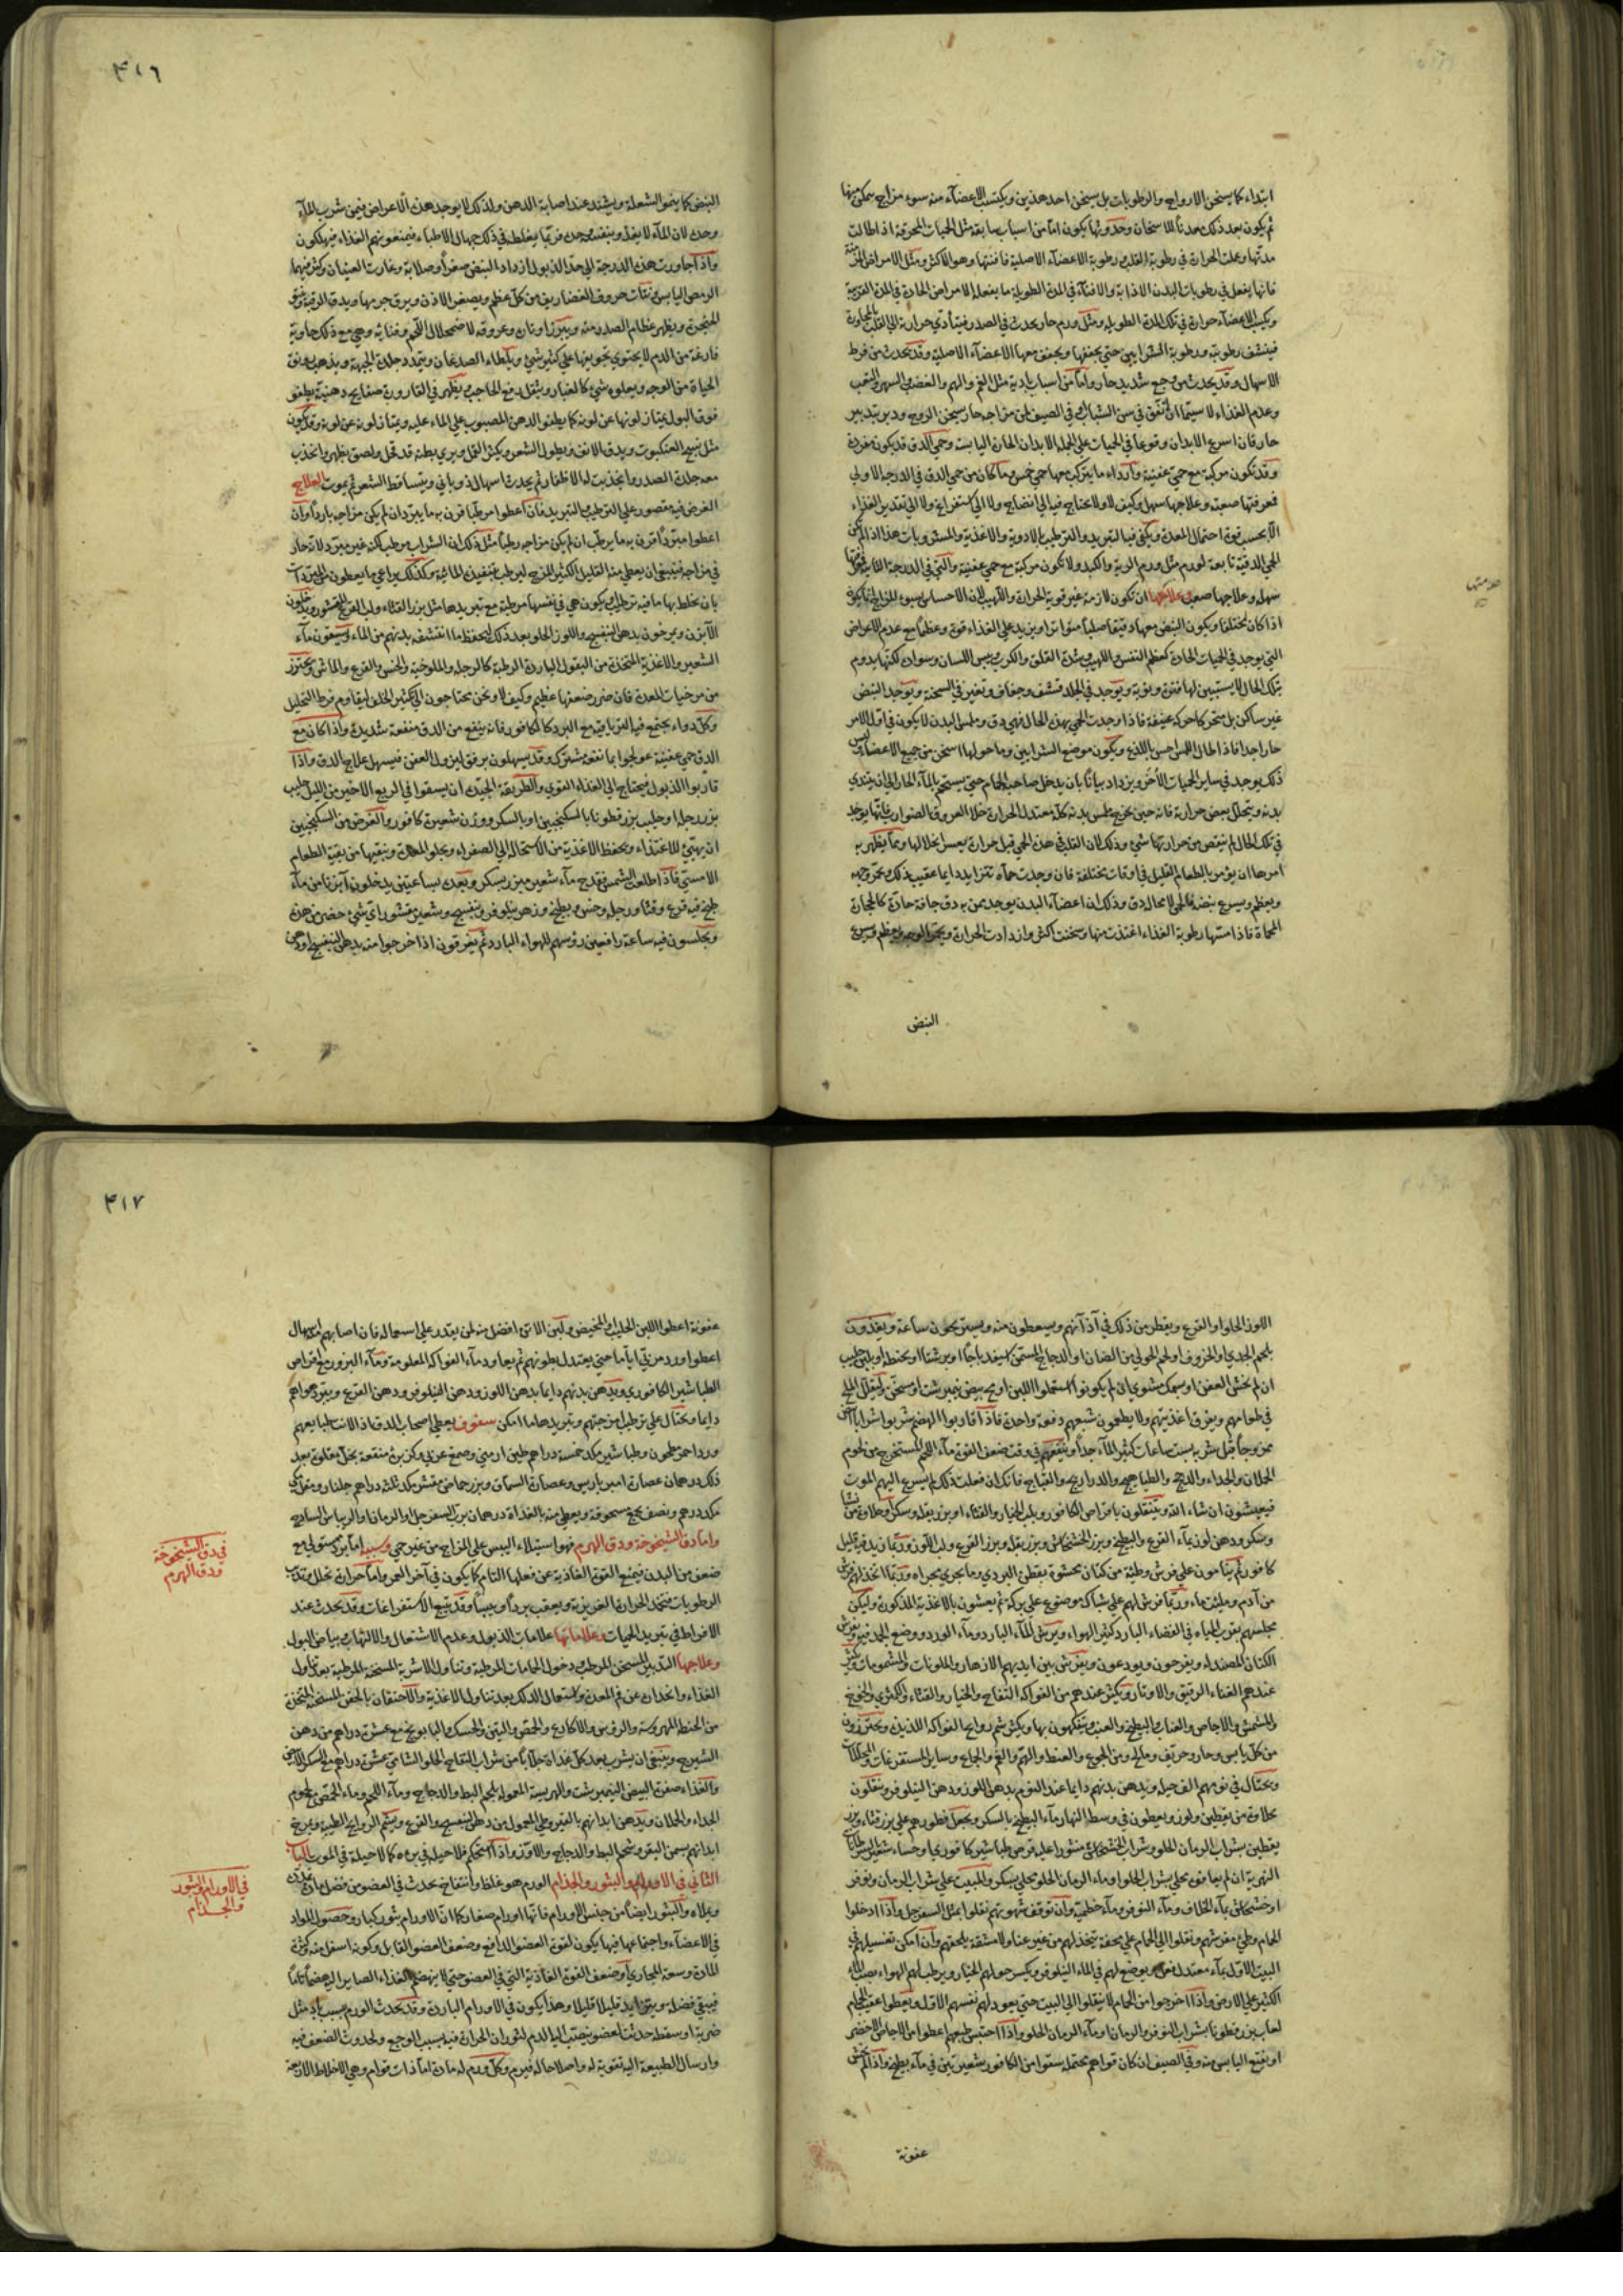 ابتداء كما يسخن الارواح والرطوبات بل يسخن احد هذين ويكتسب الاعضآء منه سوء مزاج يمكن منها
ثم يكون بعد ذلك معدناً للاسخان وحدوثها يكون اما من اسباب سابقة مثل الحميات المحرقة اذا طالت
مدتها وعملت الحرارة في رطوبة القلب ورطوبة الاعضآء الاصلية فافنتها وهو الاكثر ومثل الامراض المزمنة
فانها يفعل في رطوبات البدن الاذابة والافنآء في المدة الطويلة ما يفعله الامراض الحادة في المدة القريبة
ويكسب الاعضآء حرارة في تلك المدة الطويلة ومثل ورم حار يحدث في الصدر فيتأدي حرارته الي القلب بالمجاورة
فينشف رطوبته ورطوبة الشرايين حتي يجففها ويجفف معها الاعضآء الاصلية وقد يحدث من فرط
الاسهال وقد يحدث من وجع شديد حار واما من اسباب بادية مثل الغم والهم والغضب والسهر والتعب
وعدم الغذاء لا سيما ان اتفق في سن الشباب في الصيف لمن مزاجه حار يسخن الروح ودبر بتدبير
حار فان اسرع الابدان وقوعاً في الحميات علي الجملة الابدان الحارة اليابسة وحمي الدق قد يكون مفردة
وقد تكون مركبة مع حمي عفنية وارداء ما يتركب معها حمي خمس وما كان من حمي الدق في الدرجة الاولي
فمعرفتها صعبة وعلاجها سهل وكيف لا ولا يحتاج فيه الي انضاج ولا الي استفراغ ولا الي تقدير الغذاء
الا بحسب قوة احتمال المعدة ويكفي فيها التبريد والترطيب بالادوية والاغذية والمشروبات هذا اذا لم تكن
الحمي الدقية تابعة لورم مثل ورم الرية والكبد ولا تكون مركبة مع حمي عفنية والتي في الدرجة الثانية فمعرفتها
سهلة وعلاجها صعب وعلاماتها ان تكون لازمة غير قوية الحرارة واللهيب لان الاحساس بسوء المزاج انما يكون
اذا كان مختلفا ويكون النبض معها دقيقا صلبا متواترا ويزيد علي الغذاء قوة وعظما مع عدم الاعراض
التي يوجد في الحميات الحادة كعظم النفس واللهيب وشدة القلق والكرب ويبس اللسان وسواده لكنها يدوم
بتلك الحال لا يستبين لها فترة ونوبة ويوجد في الجلد قشف وجفاف وتغير في السحنة ويوجد النبض
غير ساكن بل متحركا حركة عنيفة فاذا وجدت الحمي بهذه الحال فهي دق وملمس البدن لا يكون في اول الامر
حار اجدا فاذا طال اللمس احس باللذع ويكون موضع الشرايين وما حولها اسخن من جميع الاعضآء وليس
ذلك يوجد في ساير الحميات الاخر ويزداد بيانا بان يدخل صاحبه الحمام حتي يستحم بالمآء الحار الي ان يتندي
بدنه ويتحلل بعض حرارته فانه حين يخرج ملمس بدنه كله معتدل الحرارة خلا العروق الضوارب فانها يوجد
في تلك الحال لم ينتقص من حرارتها شيء وذلك لان القلب في هذه الحمي قبل حرارة يعسر انحلالها ومما يظهر به
امرها ان يؤمر بالطعام القليل في اوقات مختلفة فان وجدت حمآه تتزايد دايما عقيب ذلك يتموج به
ويعظم ويسرع نبضه فالحمي لا محالة دق وذلك ان اعضآء البدن يوجد بمن به دق جافة حارة كالحجارة
المحماة فاذا مستها رطوبة الغذاء اغتذت منها وسخنت اكثر وازدادت الحرارة ويحمر الوجه ويعظم ويسرع
النبض
٤١٦
النبض كما ينمو الشعلة ويشتد عند اصابة الدهن ولذلك لا يوجد هذه الاعراض فيمن شرب المآء
وحده لان المآء لا يغذو بنفسه وحده فربما يغلط في ذلك جهال الاطباء فيمنعونهم الغذاء فيهلكون
واذا جاوزت هذه الدرجة الي حد الذبول ازداد النبض صغراً وصلابة وغارت العينان وكثر فيهما
الرمص اليابس ونتأت حروف الغضاريف من كل عظم ويصغر الاذن ويرق جرمها ويدق الرقبة وينتو
الحنجرة ويظهر عظام الصدر منه ويبرز اوتاره وعروقه لاضمحلال اللحم وفنايه وهي مع ذلك خاوية
فارغة من الدم لا يحتوي تجويفها علي كثير شيء ويلطاء الصدغان ويتمدد جلدة الجبهة ويذهب رونق
الحياة من الوجه ويعلوه شيء كالغبار ويثقل رفع الحاجب ويظهر في القارورة صفايح دهنية يطفو
فوق البول يمتاز لونها عن لونه كما يطفو الدهن المصبوب علي الماء عليه ويمتاز لونه عن لونه وقد يكون
مثل نسج العنكبوت ويدق الانف ويطول الشعر ويكثر القمل ويري بطنه قد قحل ولصق بظهره وانجذب
معه جلدة الصدر وانجذبت له الاظفار ثم يحدث اسهال ذوباني ويتساقط الشعر ثم يموت العلاج
الغرض فيه مقصور علي الترطيب والتبريد فان اعطوا مرطباً قرن به ما يبرد ان لم يكن مزاجه بارداً وان
اعطوا مبرداً قرن به ما يرطب ان لم يكن مزاجه رطباً مثل ذلك ان الشراب مرطب لكنه غير مبرد لانه حار
في مزاجه فينبغي ان يعطي منه القليل الكثير المزج ليرطب بتنفيذه المائية وكذلك يراعي ما يعطون من المبردات
بان يخلط بها ما فيه ترطيب او يكون هي في نفسها مرطبة مع تبريدها مثل بزر القثاء ولب القرع المقشور ويدخلون
الآبزن ويمرخون بدهن البنفسج واللوز الحلو بعد ذلك ليحفظ ما انتشفه بدنهم من الماء ويسقون مآء
الشعير والاغذية المتخذة من البقول الباردة الرطبة كالرجلة والملوخية والخس والقرع والماش ويحترز
من مرخيات المعدة فان ضرر ضعفها عظيم وكيف لا ونحن محتاجون الي تكثير الخلف ليقاوم فرط التحليل
وكل دواء يجتمع فيه الترياقية مع البرد كالكافور فانه ينفع من الدق منفعة شديدة واذا كان مع
الدق حمي عفنية عولجوا بما نفعه مشترك وقد يسهلون برفق ليزول العفن فيسهل علاج الدق واذا
قاربوا الذبول فيحتاج الي الغذاء القوي والطريقة الجيدة ان يسقوا في الربع الاخير من الليل حليب
بزر رجلة او حليب بزر قطونا بالسكنجبين او بالسكر ووزن شعيرة كافور والغرض من السكنجبين
ان يهيئ للاغتذاء ويحفظ الاغذية من الاستحالة الي الصفراء ويجلو المعدة وينقيها من بقية الطعام
الامسي فاذا طلعت الشمس قدح مآء شعير مبزر بسكر وبعده بساعتين يدخلون آبزنا من مآء
طبخ فيه قرع وقثا ورجلة وخس وبطيخ وزهر نيلوفر وبنفسج وشعير مقشور اي شيء حضر من هذه
ويجلسون فيه ساعة رافعين رؤسهم للهواء البارد ثم يغرقون اذا خرجوا منه بدهن البنفسج او دهن
اللوز الحلو او القرع ويقطر من ذلك في آذآنهم ويسعطون منه ويستريحون ساعة ويغذون
بلحم الجدي والخروف او لحم الحولي من الضان او الدجاج المسمن اسفيدباجا او برشتا او بحنطة او بلبن حليب
ان لم يخش العفن او سمك مشوي ان لم يكونوا استعملوا اللبن او مح بيض نيمبرشت او مسخن وليقلل الملح
في طعامهم ويفرق اغذيتهم ولا يطعمون شبعهم دفعة واحدة فاذا قاربوا الهضم شربوا شرابا ابيض
ممزوجاً قبل شربه بست ساعات كثير المآء جدا وينفعهم في وقت ضعف القوة مآء اللحم المستخرج من لحوم
الحملان والجداء والدجج والطياهيج والدراريج والقباج فانك ان فعلت ذلك لم يسرع اليهم الموت
فيعيشون ان شاء الله ويتنقلون باقراص الكافور وبلب الخيار والقثاء او بزر بقلة وسكر وحلاوة من نشا
وسكر ودهن لوز بمآء القرع والبطيخ وبزر الخشخاش وبزر بقلة وبزر القرع ولب اللوز وربما زيد فيه قليل
كافور ثم ينامون علي فرش وطية من كتان محشوة بقطن البردي وما يجري مجراه وربما اتخذ لهم فرش
من آدم وملئت ماء وربما فرش لهم علي شباك موضوع علي بركة ثم يعشون بالاغذية المذكورة وليكن
مجلسهم بقرب المياه في الفضاء البارد كثير الهواء ويرش المآء البارد ومآء الورد ووضع الجمد فيه وفرش
الكتان المصندلة ويفرحون ويودعون ويفرش بين ايديهم الازهار والملونات والمشمومات ويكثر
عندهم الغناء الرقيق والاوتار ويكثر عندهم من الفواكه التفاح والخيار والقثاء والكمثري والخوخ
والمشمش والاجاص والعناب والبطيخ والعنب ويتفكهون بها ويكثر شم روايح الفواكه اللذيذة ويحترزون
من كل يابس وحار وحريف ومالح ومن الجوع والعطش والهم والغم والجماع وساير المستفرغات والمحللات
ويحتال في نومهم القيلولة ويدهن بدنهم دايما عند النوم بدهن اللوز ودهن النيلوفر ويتنقلون
بحلاوة من يقطين ولوز ويعطون في وسط النهار مآء البطيخ بالسكر ويجعل فطورهم علي بزر قثاء وبزر
يقطين بشراب الرمان الحلو وشراب الخشخاش منثورا عليه قرص طباشير كافوري وحساء شعير بسرطانات
النهرية ان لم يعافوه محلي بشراب الحلو او ماء الرمان الحلو محلي بسكر والمبيت علي شراب الرمان ونوفر
او خشخاش بمآء الخلاف ومآء النوفر ومآء خطمية وان توقفت شهوتهم نقلوا بمثل السفرجل واذا ادخلوا
الحمام وطئ مفرشهم ونقلوا الي الحمام علي محفة يتخذ لهم من غير عنا ولا مشقة يلحقهم وان امكن تغسيلهم في
البيت الاول بمآء معتدل فهو ويوضع لهم في الماء النيلوفر ويكسر حولهم الخيار ويرطب لهم الهواء بصب المآء
الكثير علي الارض واذا خرجوا من الحمام لا ينقلوا الي البيت حتي يعود لهم نفسهم الاول ويعطوا عقيب الحمام
لعاب بزر قطونا بشراب النوفر والرمان او مآء الرمان الحلو واذا احتبس طبعهم اعطوا من الاجاص الاخضر
او بنقيع اليابس منه وفي الصيف ان كان قواهم يحتمله سقوا من الكافور شعيرتين في مآء بطيخ واذا لم يخش
عفونة
٤١٧
عفونة اعطوا اللبن الحليب والمخيض ولبن الاتن افضل منه لمن يقدر علي استعماله فان اصابهم اسهال
اعطوا ورد مربي اياما حتي يعتدل بطونهم ثم يعاود مآء الفواكه المعلومة ومآء البزور مع اقراص
الطباشير الكافوري ويدهن بدنهم دايما بدهن اللوز ودهن النيلوفر ودهن القرع ويبرد هواهم
دايما ويحتال علي ترطيب امزجتهم وتبريدها ما امكن سفوف يعطي اصحاب الدق اذا لانت طبايعهم
ورد احمر مطحون وطباشير مكد خمسة دراهم طين ارمني وصمغ عربي وكزبرة منقعة بخل مقلوة بعد
ذلك درهمان عصارة امبرباريس وعصارة السماق وبزر حماض مقشر مكد ثلثة دراهم جلنار ومقل مكي
مكد درهم ونصف يجمع مسحوقة ويعطي منه بالغداة درهمان برب السفرجل والرمان والريباس الساذج
واما دق الشيخوخة ودق الهرم فهو استيلاء اليبس علي المزاج من غير حمي وسببه اما برد مستولي مع
ضعف من البدن فيمنع القوة الغاذية عن فعلها التام كما يكون في آخر العمر واما حرارة تحلل وتذيب
الرطوبات فتخمد الحرارة الغريزية ويعقب برداً ويبساً وقد يتبع الاستفراغات وقد يحدث عند
الافراط في تبريد الحميات وعلاماتها علامات الذبول وعدم الاشتعال والالتهاب وبياض البول
وعلاجها التدبير المسخن المرطب ودخول الحمامات المرطبة وتناول الاشربة المسخنة المرطبة بعد تناول
الغذاء وانحداره عن فم المعدة واستعمال الدلك بعد تناول الاغذية والاحتقان بالحقن المسخنة المتخذة
من الحنطة المهروسة والروس والاكارع والحمص والتين والحسك والبابونج مع عشرة دراهم من دهن
الشيرج وينبغي ان يشرب بعد كل غداة جلاباً من شراب التفاح الحلو الشامي عشرة دراهم مع السكر الابيض
والغذاء صفرة البيض النيمبرشت والهريسة المعمولة بلحم البط والدجاج ومآء اللحم وماء الحمص مع لحوم
الجداء والحملان ويدهن ابدانهم بالقيروطي المعمول من دهن البنفسج والقرع ويشم الروايح الطيبة ويمرخ
ابدانهم بسمن البقر وشحم البط والدجاج والاوز واذا استحكم فلا حيلة في برءه كما لا حيلة في الموت الباب
الثاني في الاورام والبثور والجذام الورم هو غلظ وانتفاخ يحدث في العضو من فضل مادة تمدده
ويملاه والبثور ايضا من جنس الاورام فانها اورام صغار كما ان الاورام بثور كبار وحصول المواد
في الاعضآء واجتماعها فيها يكون لقوة العضو الدافع وضعف العضو القابل وكونه اسفل منه وكثرة
المادة وسعة المجاري او ضعف القوة الغاذية التي في العضو حتي لا ينهضم الغذاء الصاير اليه هضما تاما
فيبقي فضلة ويتزايد قليلا قليلا وهذا يكون في الاورام الباردة وقد يحدث الورم بسبب باد مثل
ضربة او سقطة حدثت لعضو ينصب اليه الدم لثوران الحرارة فيه بسبب الوجع ولحدوث الضعف فيه
وارسال الطبيعة اليه تقوية له واصلاحا له فيرم وكل ورم له مادة اما ذات قوام وهي الاخلاط الاربعة
في دق الشيخوخة
ودق الهرم
في الاورام والبثور
والجذام